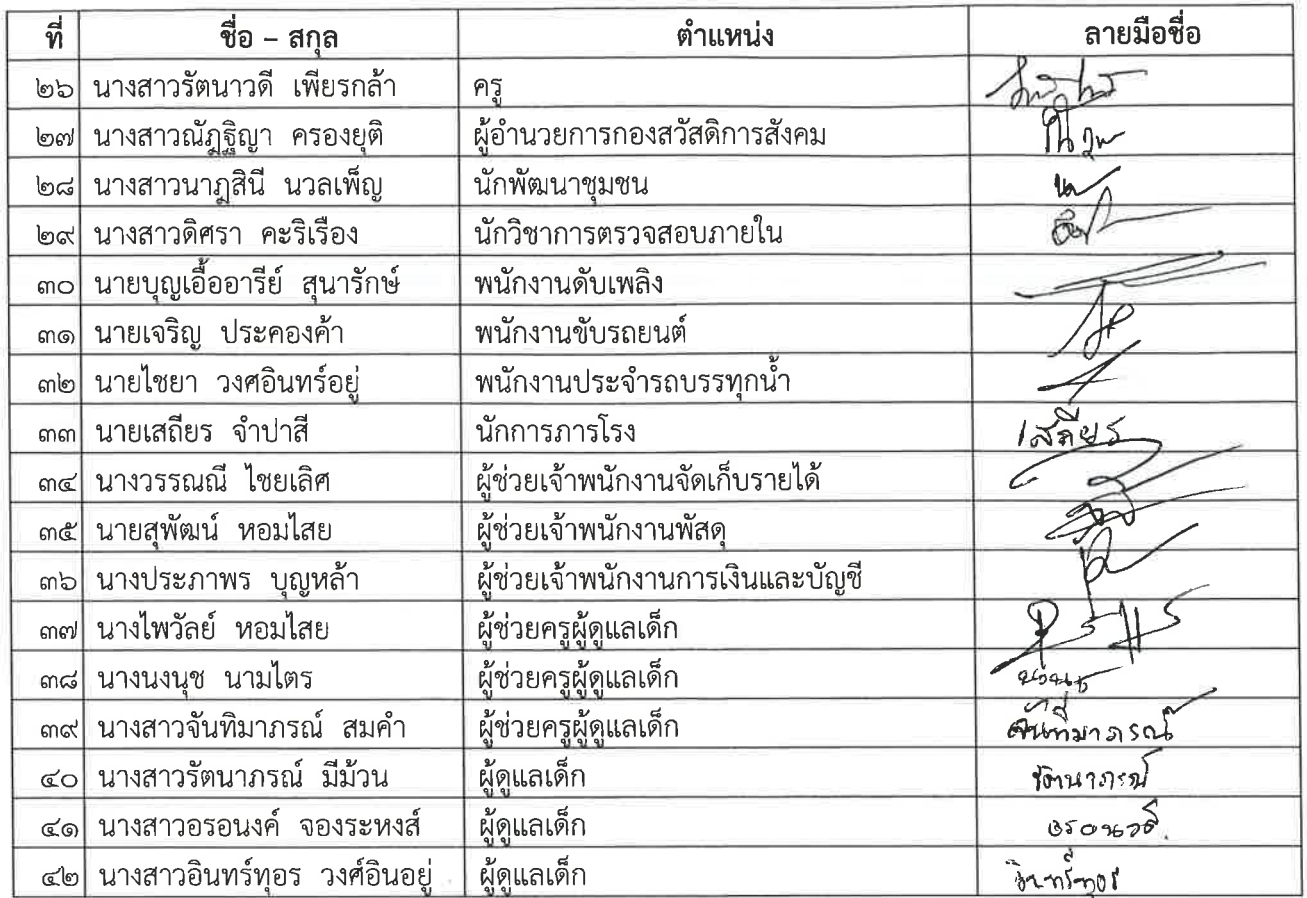 ที่ ชื่อ – สกุล ตำแหน่ง ลายมือชื่อ
๒๖ นางสาวรัตนาวดี เพียรกล้า ครู
๒๗ นางสาวณัฎฐิญา ครองยุติ ผู้อำนวยการกองสวัสดิการสังคม
๒๘ นางสาวนาฎสินี นวลเพ็ญ นักพัฒนาชุมชน
๒๙ นางสาวดิศรา คะริเรือง นักวิชาการตรวจสอบภายใน
๓๐ นายบุญเอื้ออารีย์ สุนารักษ์ พนักงานดับเพลิง
๓๑ นายเจริญ ประคองค้า พนักงานขับรถยนต์
๓๒ นายไชยา วงศอินทร์อยู่ พนักงานประจำรถบรรทุกน้ำ
๓๓ นายเสถียร จำปาสี นักการภารโรง เสถียร
๓๔ นางวรรณณี ไชยเลิศ ผู้ช่วยเจ้าพนักงานจัดเก็บรายได้
๓๕ นายสุพัฒน์ หอมไสย ผู้ช่วยเจ้าพนักงานพัสดุ
๓๖ นางประภาพร บุญหล้า ผู้ช่วยเจ้าพนักงานการเงินและบัญชี
๓๗ นางไพวัลย์ หอมไสย ผู้ช่วยครูผู้ดูแลเด็ก
๓๘ นางนงนุช นามไตร ผู้ช่วยครูผู้ดูแลเด็ก นงนุช
๓๙ นางสาวจันทิมาภรณ์ สมคำ ผู้ช่วยครูผู้ดูแลเด็ก จันทิมาภรณ์
๔๐ นางสาวรัตนาภรณ์ มีม้วน ผู้ดูแลเด็ก รัตนาภรณ์
๔๑ นางสาวอรอนงค์ จองระหงส์ ผู้ดูแลเด็ก
๔๒ นางสาวอินทร์ทุอร วงศ์อินอยู่ ผู้ดูแลเด็ก อินทร์ทุอร